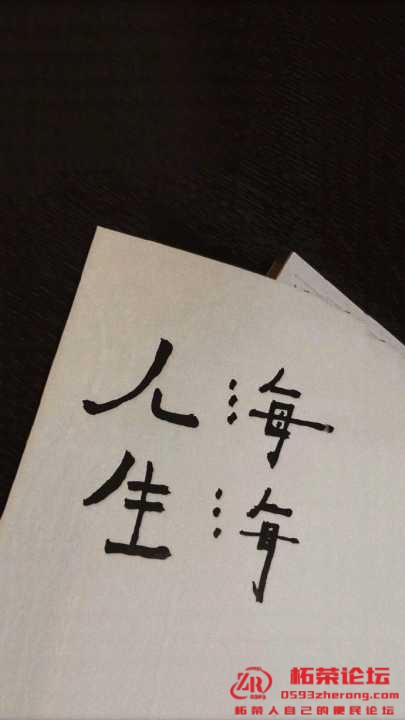 人生
海海
ZR
柘荣论坛
0593zherong.com
柘荣人自己的便民论坛